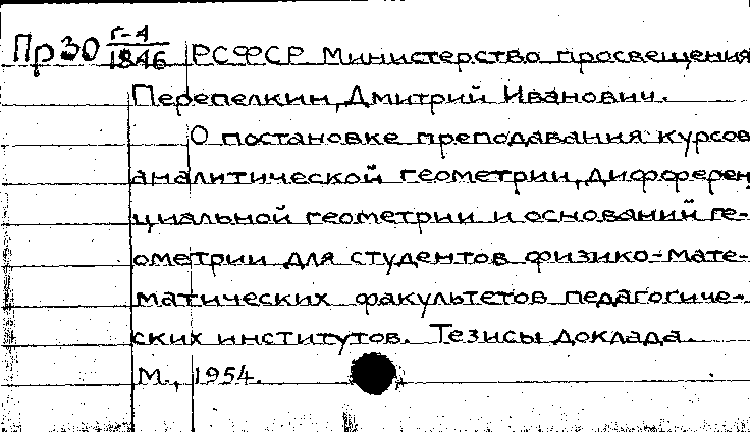 Пр30 г-4/1846 РСФСР Министерство просвещения
Перепелкин, Дмитрий Иванович.
О постановке преподавания курсов
аналитической геометрии, дифферен
циальной геометрии и оснований ге-
ометрии для студентов физико-мате-
матических факультетов педагогиче-
ских институтов. Тезисы доклада.
М., 1954.